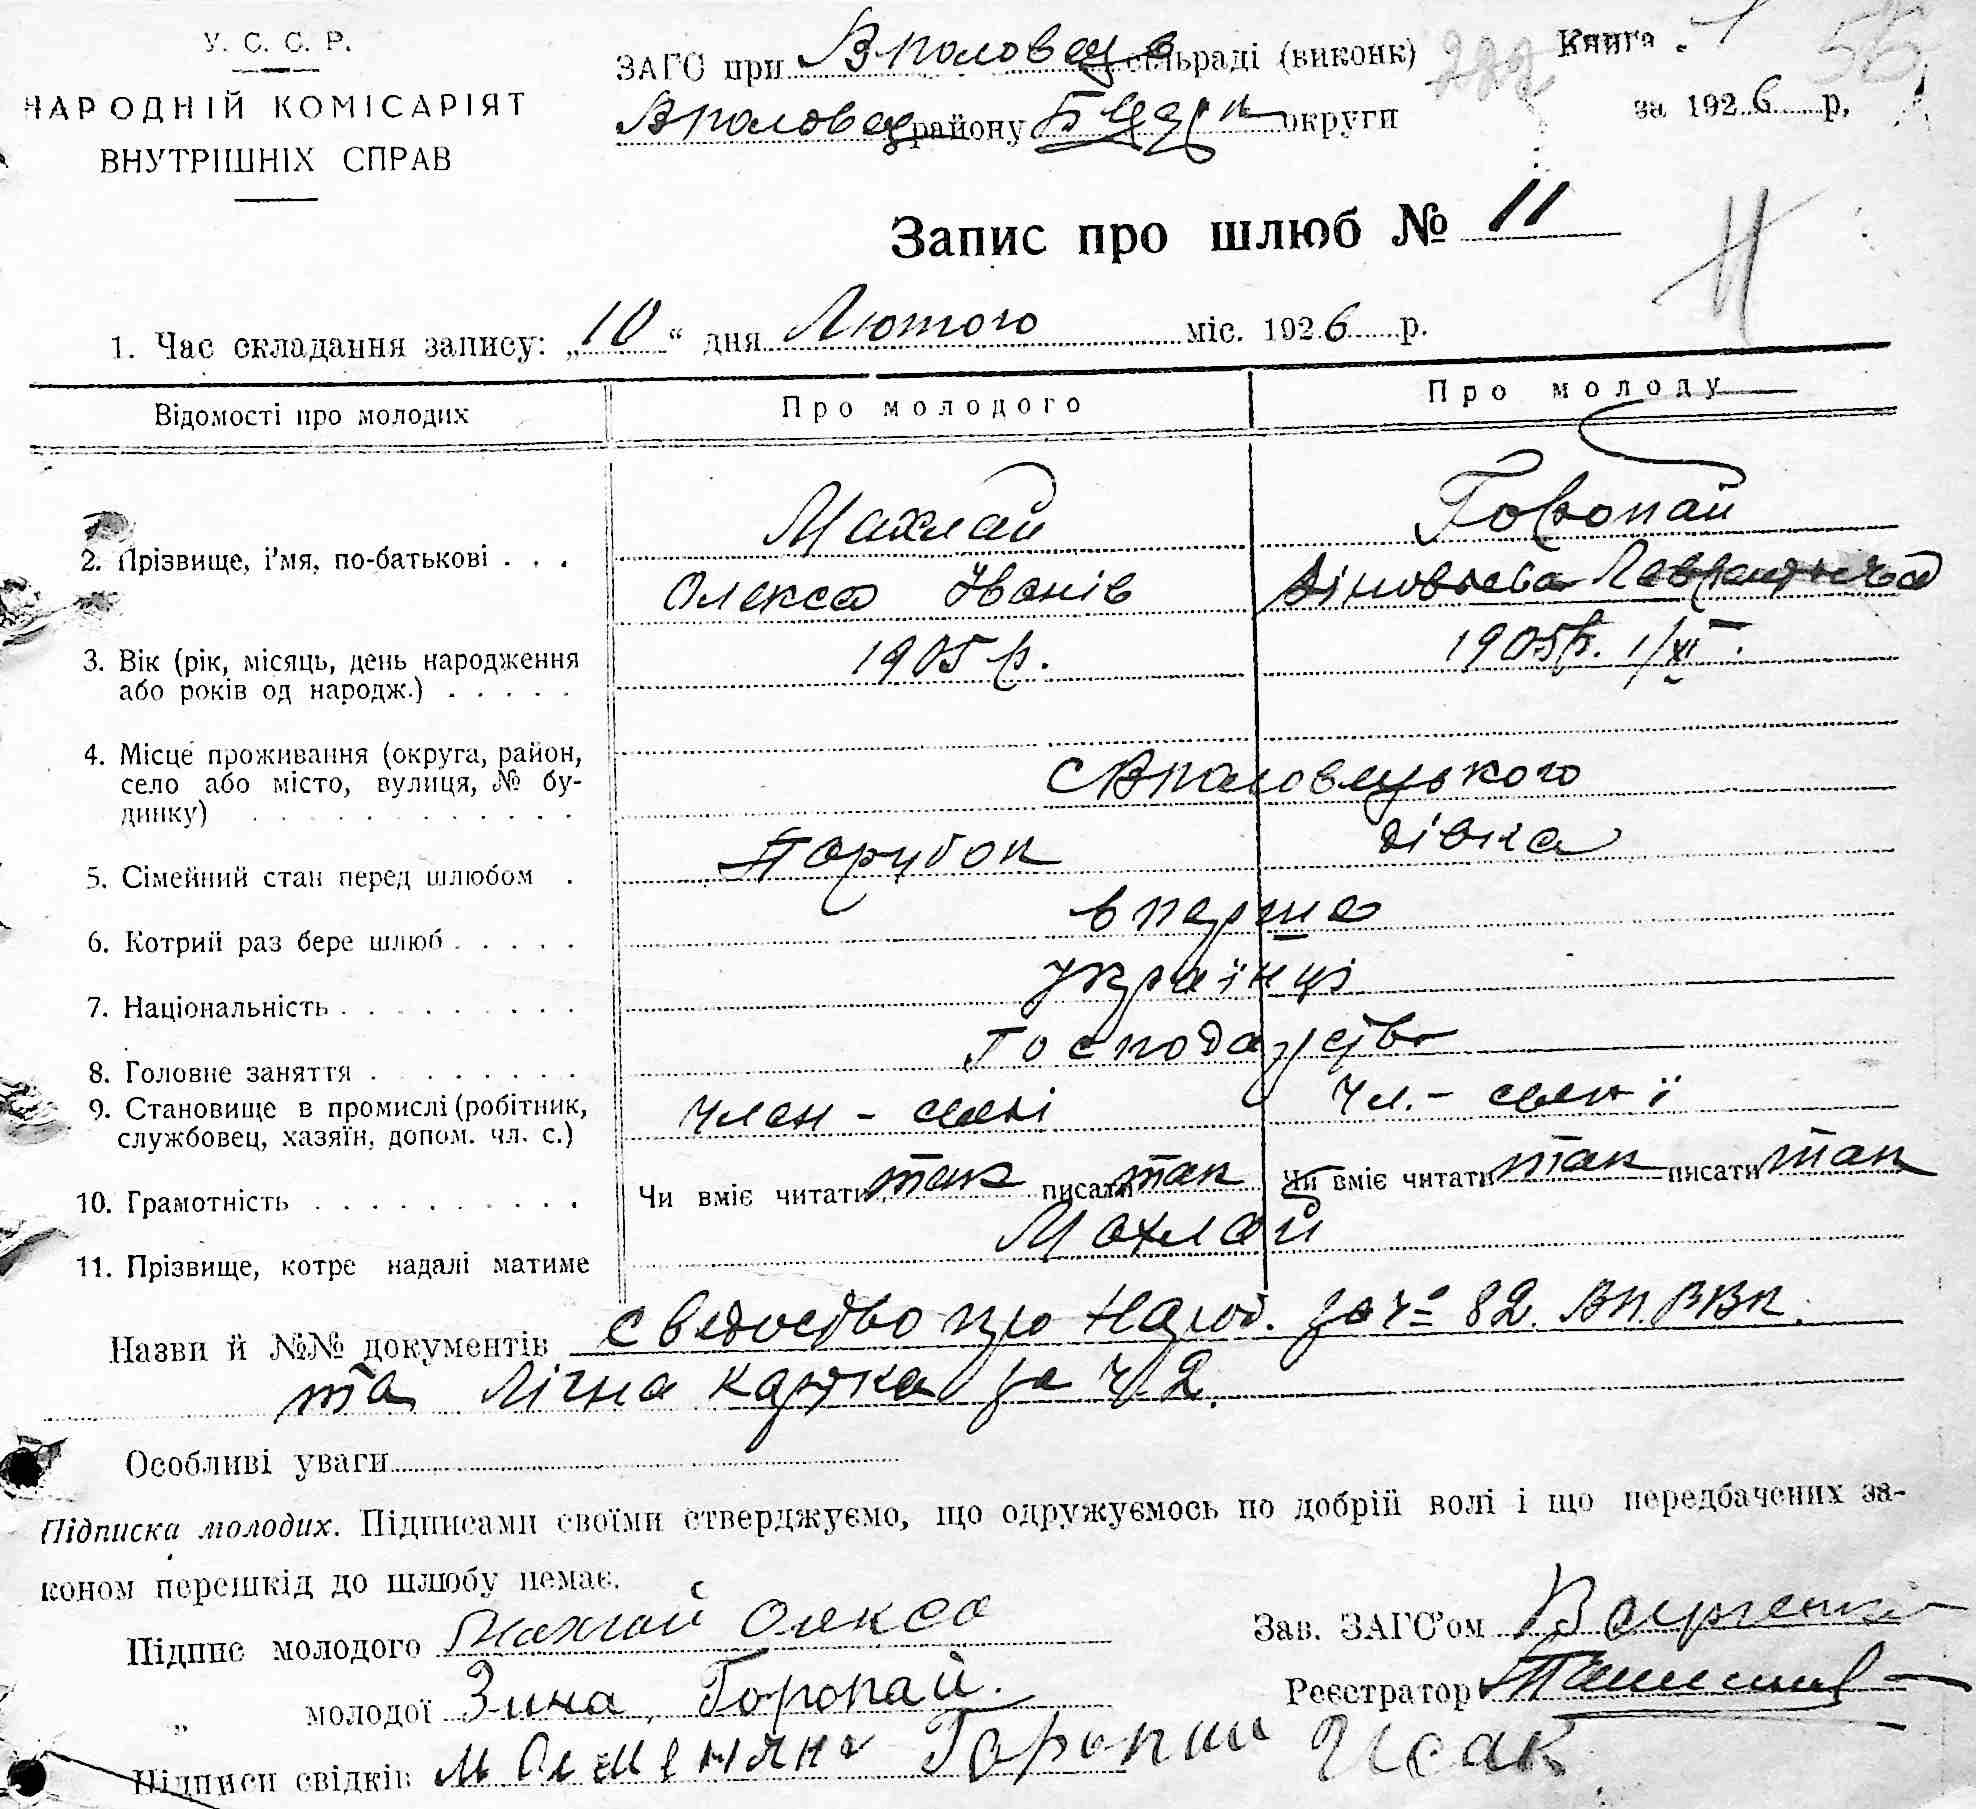 У. С. С. Р.
НАРОДНІЙ КОМІСАРІЯТ
ВНУТРІШНІХ СПРАВ
ЗАГС при Вполовец сільраді (виконк)
Вполовец району БЦерк округи
Книга 1
за 1926 р,
Запис про шлюб № 11
1. Час складання запису: „10“ дня Лютого міс. 1926 р.
Відомості про молодих Про молодого Про молоду
2. Прізвище, і'мя, по-батькові . . . Махлай Горопай
Олекса Іванів Зіновьева
3. Вік (рік, місяць, день народження 1905 р. 1905 р. 1/XI
або років од народж.) . . . . .
4. Місце проживання (округа, район,
село або місто, вулиця, № бу- с Вполовецького
динку) . . . . . . . . . . . .
5. Сімейний стан перед шлюбом . Парубок дівка
6. Котрий раз бере шлюб . . . . . вперше
7. Національність . . . . . . . . . українці
8. Головне заняття . . . . . . . . Господарство
9. Становище в промислі (робітник, член - семі чл. - семї
службовец, хазяїн, допом. чл. с.)
10. Грамотність . . . . . . . . . . Чи вміє читати так писати так Чи вміє читати так писати так
11. Прізвище, котре надалі матиме Махлай
Назви й №№ документів свідоцтво про народ. за ч 82. ВП. ВВК.
та Лічна картка за ч 2.
Особливі уваги
Підписка молодих. Підписами своїми стверджуємо, що одружуємось по добрій волі і що передбачених за-
коном перешкід до шлюбу немає.
Підпис молодого Махлай Олекса
Зав. ЗАГС'ом
„ молодої Зина Горопай.
Реєстратор
Підписи свідків Горопай Исак